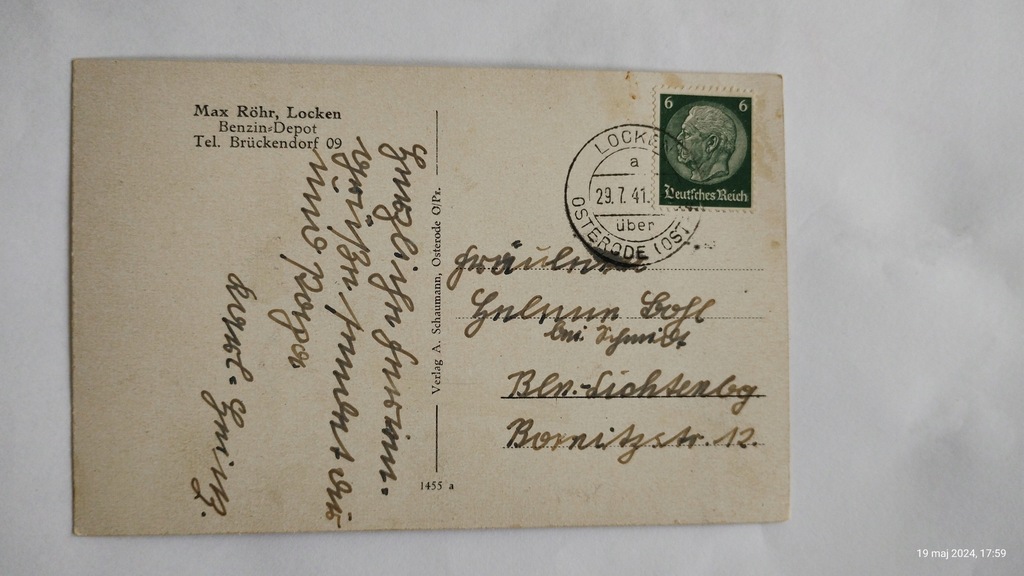 Max Röhr, Locken
Benzin-Depot
Tel. Brückendorf 09
Herzliche
Grüße sendet
und
Verlag A. Schaumann, Osterode O/Pr.
1455 a
6 6
Deutsches Reich
LOCKE
a
29.7.41.
über
OSTERODE (OST
Fräulein
bei Schmidt
Bln.-Lichtenbg
Bornitzstr. 12.
19 maj 2024, 17:59